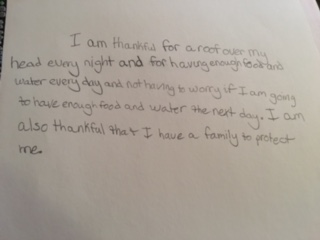 I am thankful for a roof over my
head every night and for having enough food and
water every day and not having to worry if I am going
to have enough food and water the next day. I am
also thankful that I have a family to protect
me.